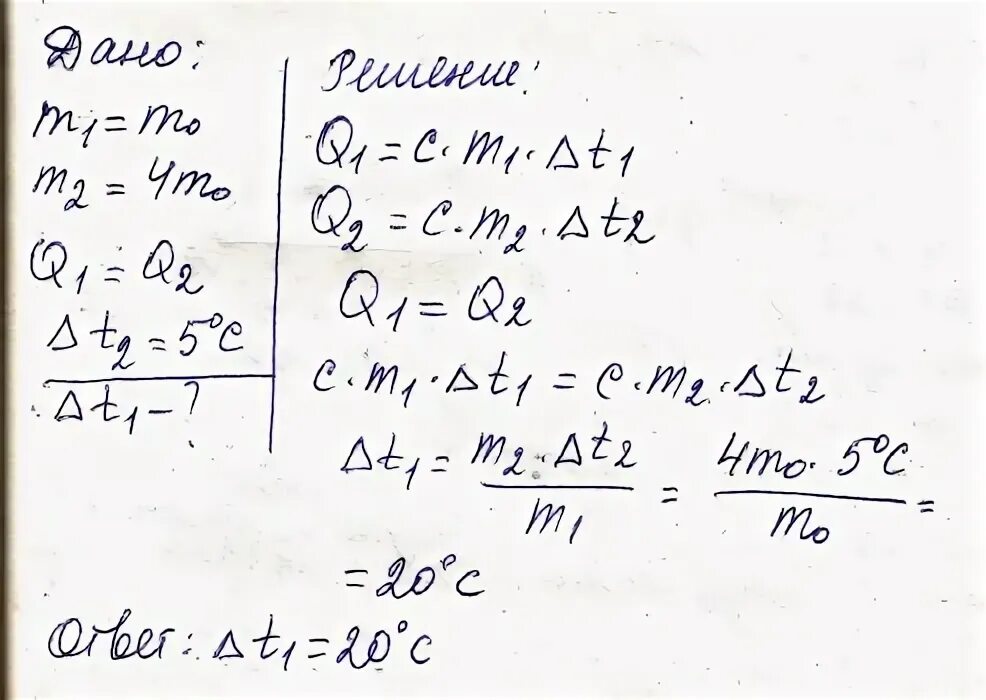 Дано:
m₁ = m₀
m₂ = 4m₀
Q₁ = Q₂
Δt₂ = 5°C
Δt₁ – ?
Решение:
Q₁ = c · m₁ · Δt₁
Q₂ = c · m₂ · Δt₂
Q₁ = Q₂
c · m₁ · Δt₁ = c · m₂ · Δt₂
Δt₁ = m₂ · Δt₂ / m₁ = 4m₀ · 5°C / m₀ =
= 20°C
Ответ: Δt₁ = 20°C